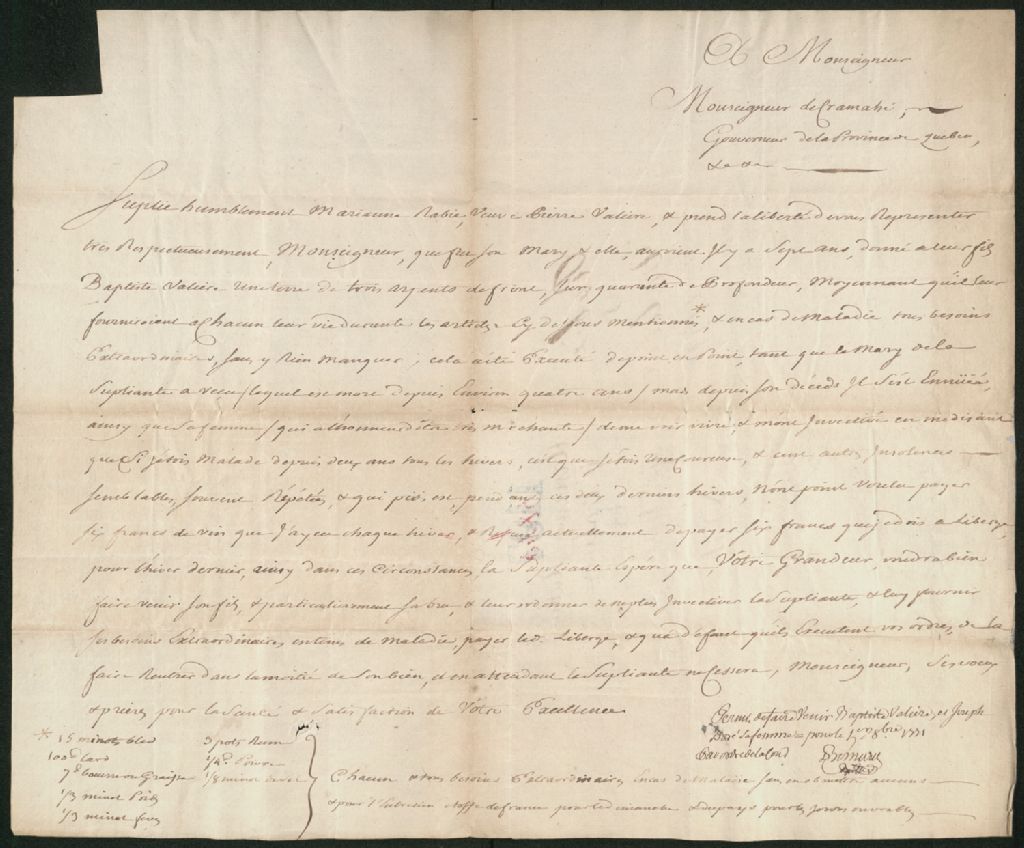 A Monseigneur
Monseigneur de Cramahé,
Gouverneur de la Province de quebec,
&a &a
Suplie humblement Marianne Rabie, Veuve Pierre Valiere, & prend la liberté de vous Representer
tres Respectueusement, Monseigneur, que feu son Mary & elle, auroient Il y a Sept ans, donné a leur fils
Baptiste Valiere Une terre de trois arpents de front, sur quarante de Profondeur, Moyennant qu'il leur
fourniroient a Chacun leur vie durante les articles Cy dessous Mentionnés *, & en cas de Maladie tous besoins
Extraordinaires, sans y Rien Manquer; cela a été Executé de point en Point, tant que le Mary de la
Supliante a vecu / lequel est mort depuis Environ quatre ans / mais depuis son décéds Il s'est Ennuïé,
ainsy que sa femme / qui a l'honneur d'être très méchante / de me voir vivre, & m'ont Invectivé en me disant
que Si j'étois Malade depuis deux ans tous les hivers, c'est que j'étois Une Coureuse, & cent autres Insolences
semblables, souvent Répétées, & qui pis est, pendant ces deux derniers hivers, N'ont point Voulu payer
six francs de vin que J'ay eu chaque hiver, & Refuse actuellement de payer six francs que je dois a Liberge,
pour l'hiver dernier, ainsy dans ces Circonstances, la Supliante Espére que Vôtre Grandeur, voudra bien
faire venir son fils, & particulierement sa bru, & leur ordonner de ne plus Invectiver la Supliante, & luy fournir
ses besoins Extraordinaires en tems de Maladie, payer led. Liberge, & qu'a défaut qu'ils Executent vos ordres, de la
faire Rentrer dans la moitié de Son bien, & en attendant la Supliante ne Cessera, Monseigneur, Ses voeux
& prieres pour la Santé & Satisfaction de Vôtre Excellence
Permis de faire Venir Baptiste Valiere, et Joseph
sa femme pour le 1771
Par ordre de la Cour
* 15 minots bled
100 d Lard
7 d beurre ou Graisse
1/3 minot Pois
1/3 minot feves
3 pots Rum
1/4 d Poivre
1/8 minot
Chacun & tous besoins Extraordinaires En cas de Maladie sans en obmettre aucuns
& pour l'habillement etoffe de france pour les dimanches & du pays pour les jours ouvrables